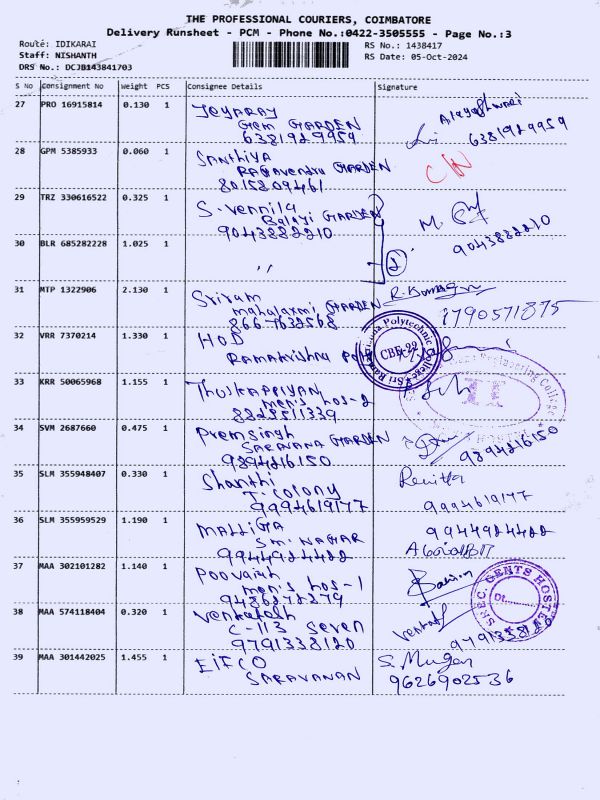 THE PROFESSIONAL COURIERS, COIMBATORE
Delivery Runsheet - PCM - Phone No.:0422-3505555 - Page No.:3
Route: IDIKARAI
RS No.: 1438417
Staff: NISHANTH
RS Date: 05-Oct-2024
DRS No.: DCJB143841703
S No Consignment No Weight PCS Consignee Details Signature
27 PRO 16915814 0.130 1 Jeyaraj
Gem GARDEN
6381929959 6381929959
28 GPM 5385933 0.060 1 Santhiya
Ragavendra GARDEN
8015809461
29 TRZ 330616522 0.325 1 S. vennila M.
Balaji GARDEN
9043882210 9043882210
30 BLR 685282228 1.025 1 ,,
2
31 MTP 1322906 2.130 1 Sriram
mahalaxmi GARDEN
866-7632568 1790571875
32 VRR 7370214 1.330 1 HOD
Ramakrishna Poly
CBE-22
33 KRR 50065968 1.155 1
men's hos-2
34 SVM 2687660 0.475 1 Premsingh
SARAVANA GARDEN
9894216150 9894216150
35 SLM 355948407 0.330 1 Shanthi
T. Colony
9994619177 9994619177
36 SLM 355959529 1.190 1 MALLIGA
Sm. NAGAR
9944924422 9944924422
37 MAA 302101282 1.140 1 Poovaiah
men's hos-1
SREC GENTS HOSTEL
38 MAA 574118404 0.320 1 Venkatesh Venkat
C-113 Seven
9791338120
39 MAA 301442025 1.455 1 EIFCO S. Mugan
SARAVANAN 9626902536